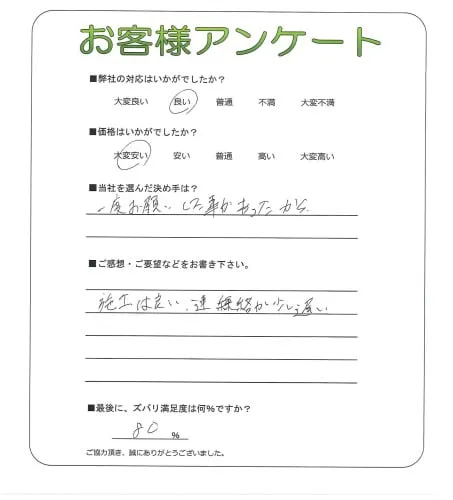 お客様アンケート
■弊社の対応はいかがでしたか?
大変良い 良い 普通 不満 大変不満
■価格はいかがでしたか?
大変安い 安い 普通 高い 大変高い
■当社を選んだ決め手は?
一度お願いした事があったから
■ご感想・ご要望などをお書き下さい。
施工は良い、連絡が少し遅い
■最後に、ズバリ満足度は何%ですか?
80 %
ご協力頂き、誠にありがとうございました。